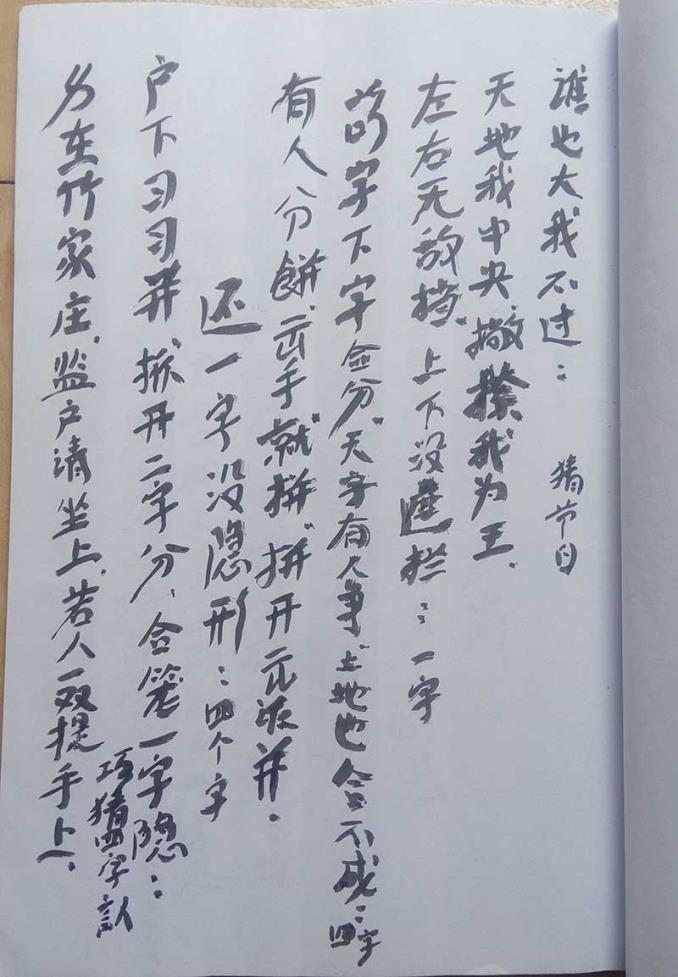 谁也大我不过： 猜节日
天地我中央，撤揆我为王，
左右无敌挡，上下没遮拦：一字
前字下字合分，天字有人争，土地也合不成：四字
有人分餅，出手就拼，拼开示没并，
还一字没隐形：四个字
户下习习并，抓开二字分，合笼一字隐：
巧猜四字训
另在竹家庄，监户请坐上，若人一双提手上，